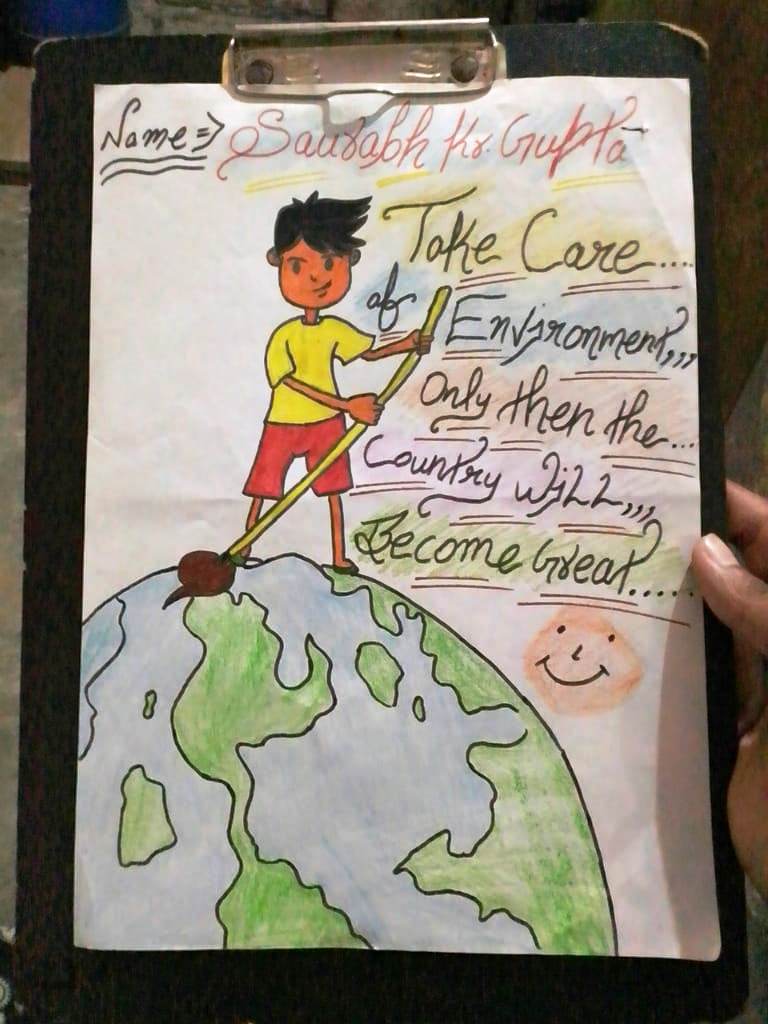 Name ⇒ Saurabh Kr Gupta
Take Care....
of Environment,,,
Only then the...
Country Will,,,
Become Great.....